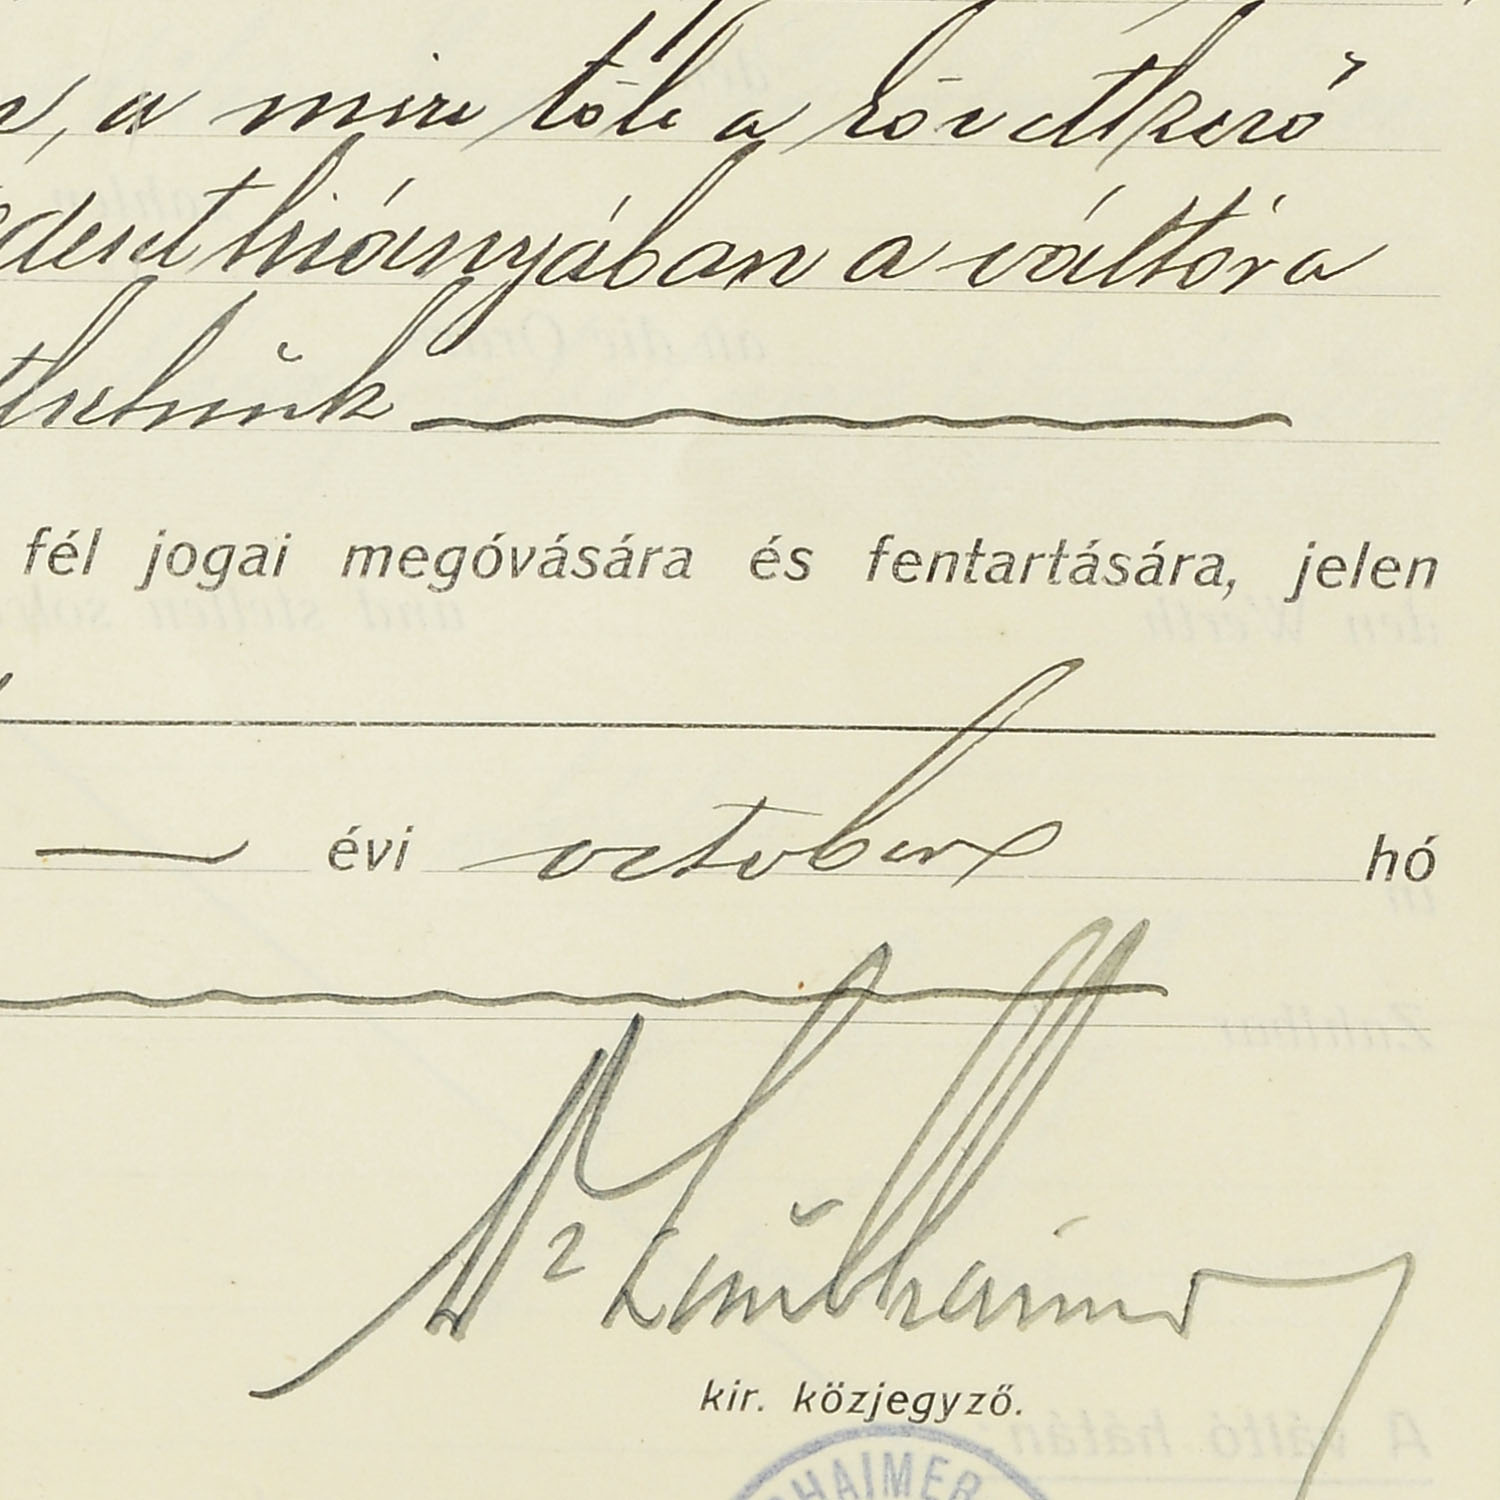 , a mire tőle a következő
fedezet hiányában a váltóra
fél jogai megóvására és fentartására, jelen
évi october hó
kir. közjegyző.
HAIMER